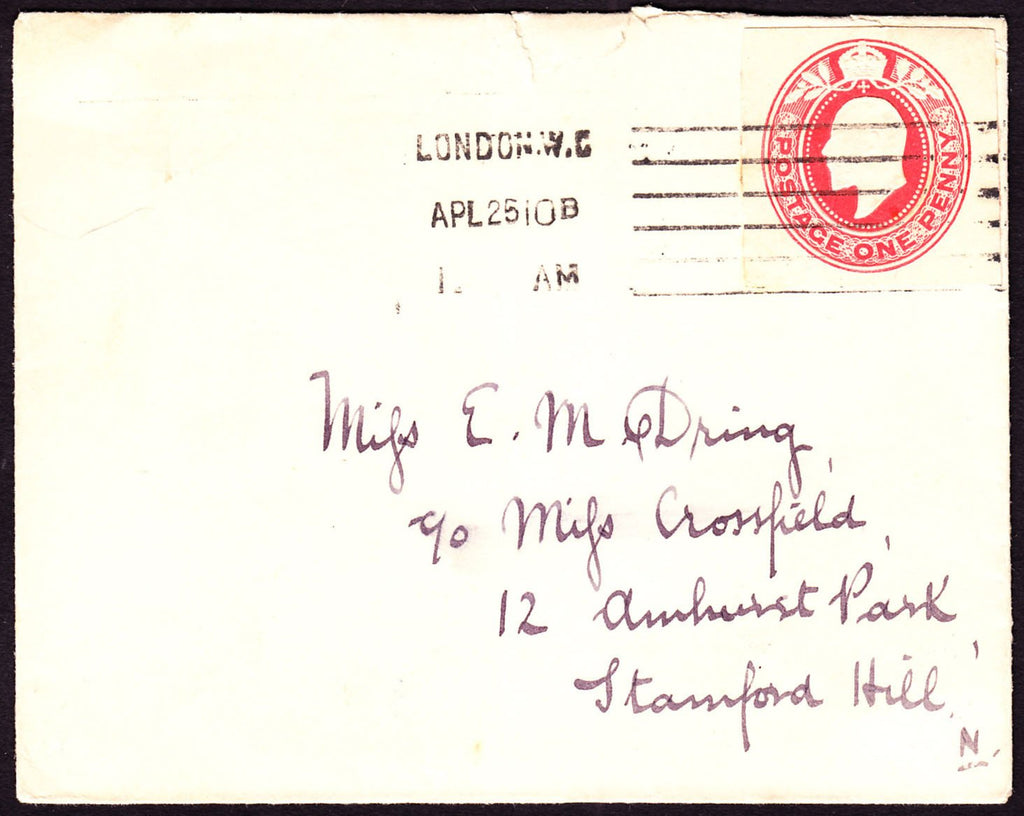 LONDON.W.C
APL 25 10 B
AM
POSTAGE ONE PENNY
Miſs E. M Dring,
c/o Miſs Crossfield,
12 Amhurst Park,
Stamford Hill,
N.